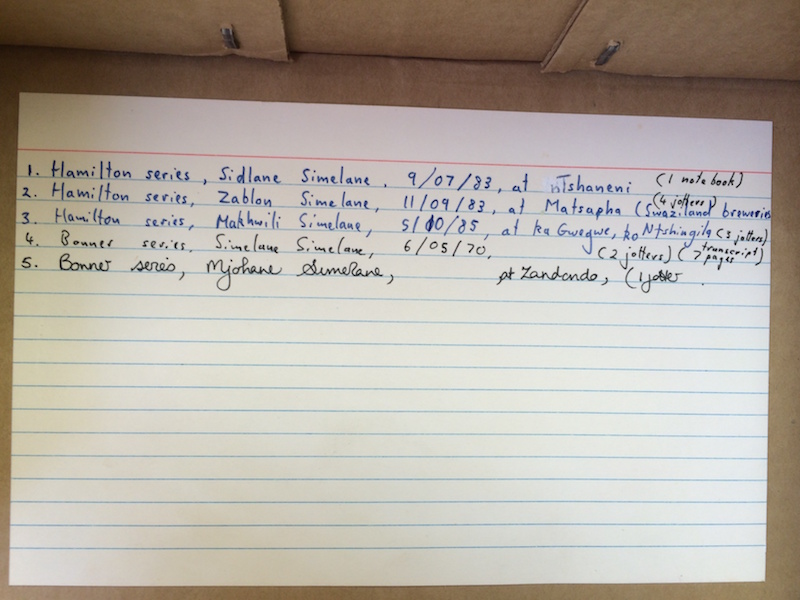 1. Hamilton series, Sidlane Simelane. 9/07/83, at Tshaneni (1 notebook)
2. Hamilton series, Zablon Simelane, 11/09/83, at Matsapha (Swaziland breweries (4 jotters)
3. Hamilton series, Makhwili Simelane, 5/10/85, at ka Gwegwe, ko Ntshingila (3 jotters)
4. Bonner series, Simelane Simelane, 6/05/70, (2 jotters) (7 transcript pages)
5. Bonner series, Mjohane Simelane, at Zandondo, (1 jotter.